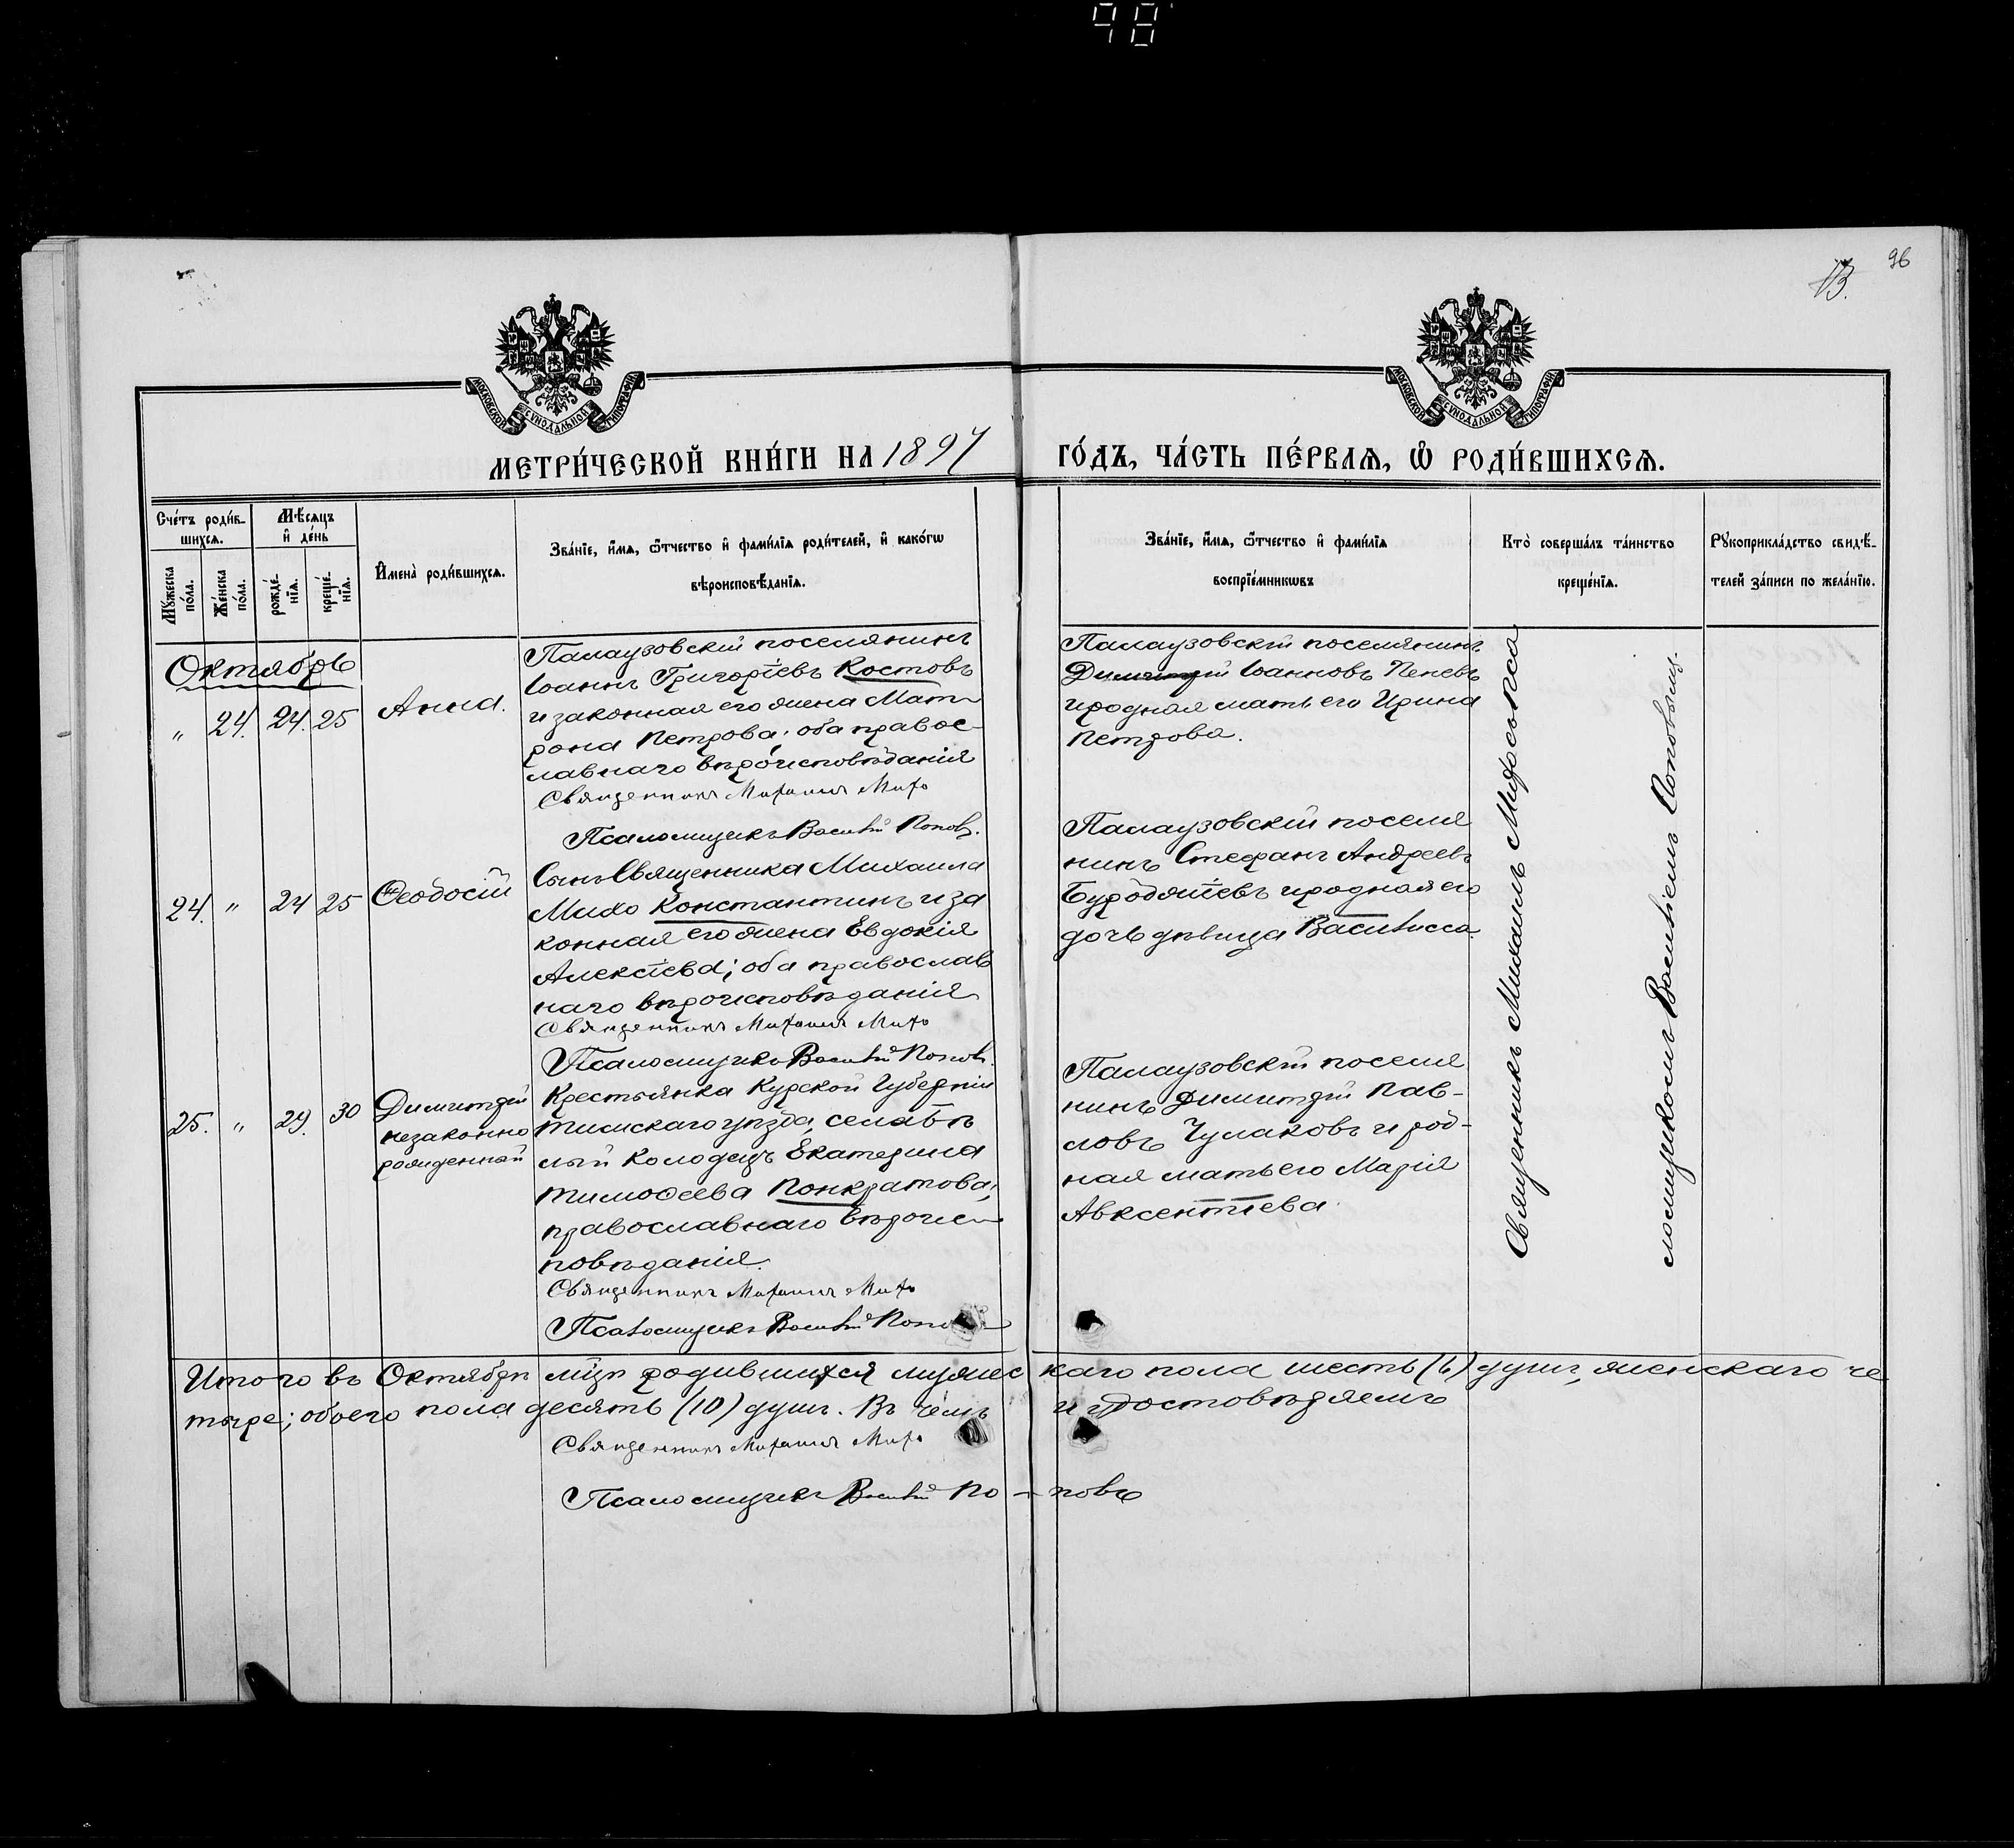 98
96
13.
МОСКОВСКОЙ СѴНОДАЛЬНОЙ ТИПОГРАФІИ
МОСКОВСКОЙ СѴНОДАЛЬНОЙ ТИПОГРАФІИ
МЕТРИ́ЧЕСКОЙ КНИ́ГИ НА 1897 ГО́ДЪ, ЧА́СТЬ ПЕ́РВАѦ, Ѡ РОДИ́ВШИХСѦ.
Сче́тъ роди́в-
шихсѧ.
Мѣ́сѧцъ
и҆ де́нь
Мꙋ́жеска
по́ла.
Же́нска
по́ла.
рожде́-
нїѧ.
креще́-
нїѧ.
И҆мена̀ роди́вшихсѧ.
Зва́нїе, и҆́мѧ, ѻ҆́тчество и҆ фами́лїѧ роди́телей, и҆ како́гѡ
вѣроисповѣ́данїѧ.
Зва́нїе, и҆́мѧ, ѻ҆́тчество и҆ фами́лїѧ
воспрїе́мникѡвъ
Кто̀ соверша́лъ та́инство
креще́нїѧ.
Рꙋкоприкла́дство свидѣ́-
телей за́писи по жела́нїю.
Октябрь
" 24. 24. 25 Анна.
Палаузовскій поселянинъ
Іоаннъ Григоріевъ Костовъ
и законная его жена Мат-
рона Петрова; оба правос-
лавнаго вѣроисповѣданія
Священникъ Михаилъ Михо
Псаломщикъ Василій Поповъ.
Палаузовскій поселянинъ
Димитрій Іоанновъ Пеневъ
и родная мать его Ирина
Петрова.
24. " 24 25 Ѳеодосій
Сынъ Священника Михаила
Михо Константинъ и за
конная его жена Евдокія
Алексіева; оба православ
наго вѣроисповѣданія
Священникъ Михаилъ Михо
Псаломщикъ Василій Поповъ.
Палаузовскій поселя
нинъ Стефанъ Андреевъ
Бурдужіевъ и родная его
дочь дѣвица Василисса
25. " 29. 30 Димитрій
незаконно
рожденный
Крестьянка Курской Губерніи
Тимскаго уѣзда, села Бѣ
лый Колодезь Екатерина
Тимофеева Понкратова;
православнаго вѣроис-
повѣданія.
Священникъ Михаилъ Михо
Псаломщикъ Василій Попо
Палаузовскій поселя
нинъ Димитрій Пав-
ловъ Чумаковъ и род-
ная мать его Марія
Авксентіева.
Священникъ Михаилъ Михо съ пса
ломщикомъ Василіемъ Поповымъ.
Итого въ Октябрѣ мцѣ родившихся мужес каго пола шесть (6) душъ, женскаго че
тыре; обоего пола десять (10) душъ. Въ чемъ и удостовѣряемъ
Священникъ Михаилъ Михо
Псаломщикъ Василій По - повъ